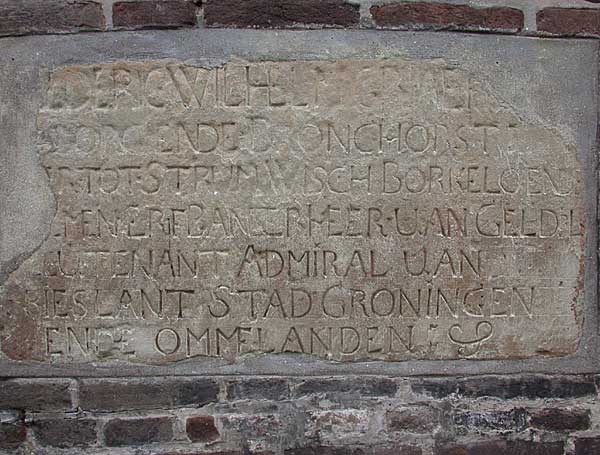 EDERIC WILHELM GRAEF
ENDE BRONCHORST
TOT STRUM WISCH BORKELO END
ERFBANERHEER UAN GELD
LEUTENANT ADMIRAL UAN
RIESLANT STAD GRONINGEN
ENDE OMMELANDEN